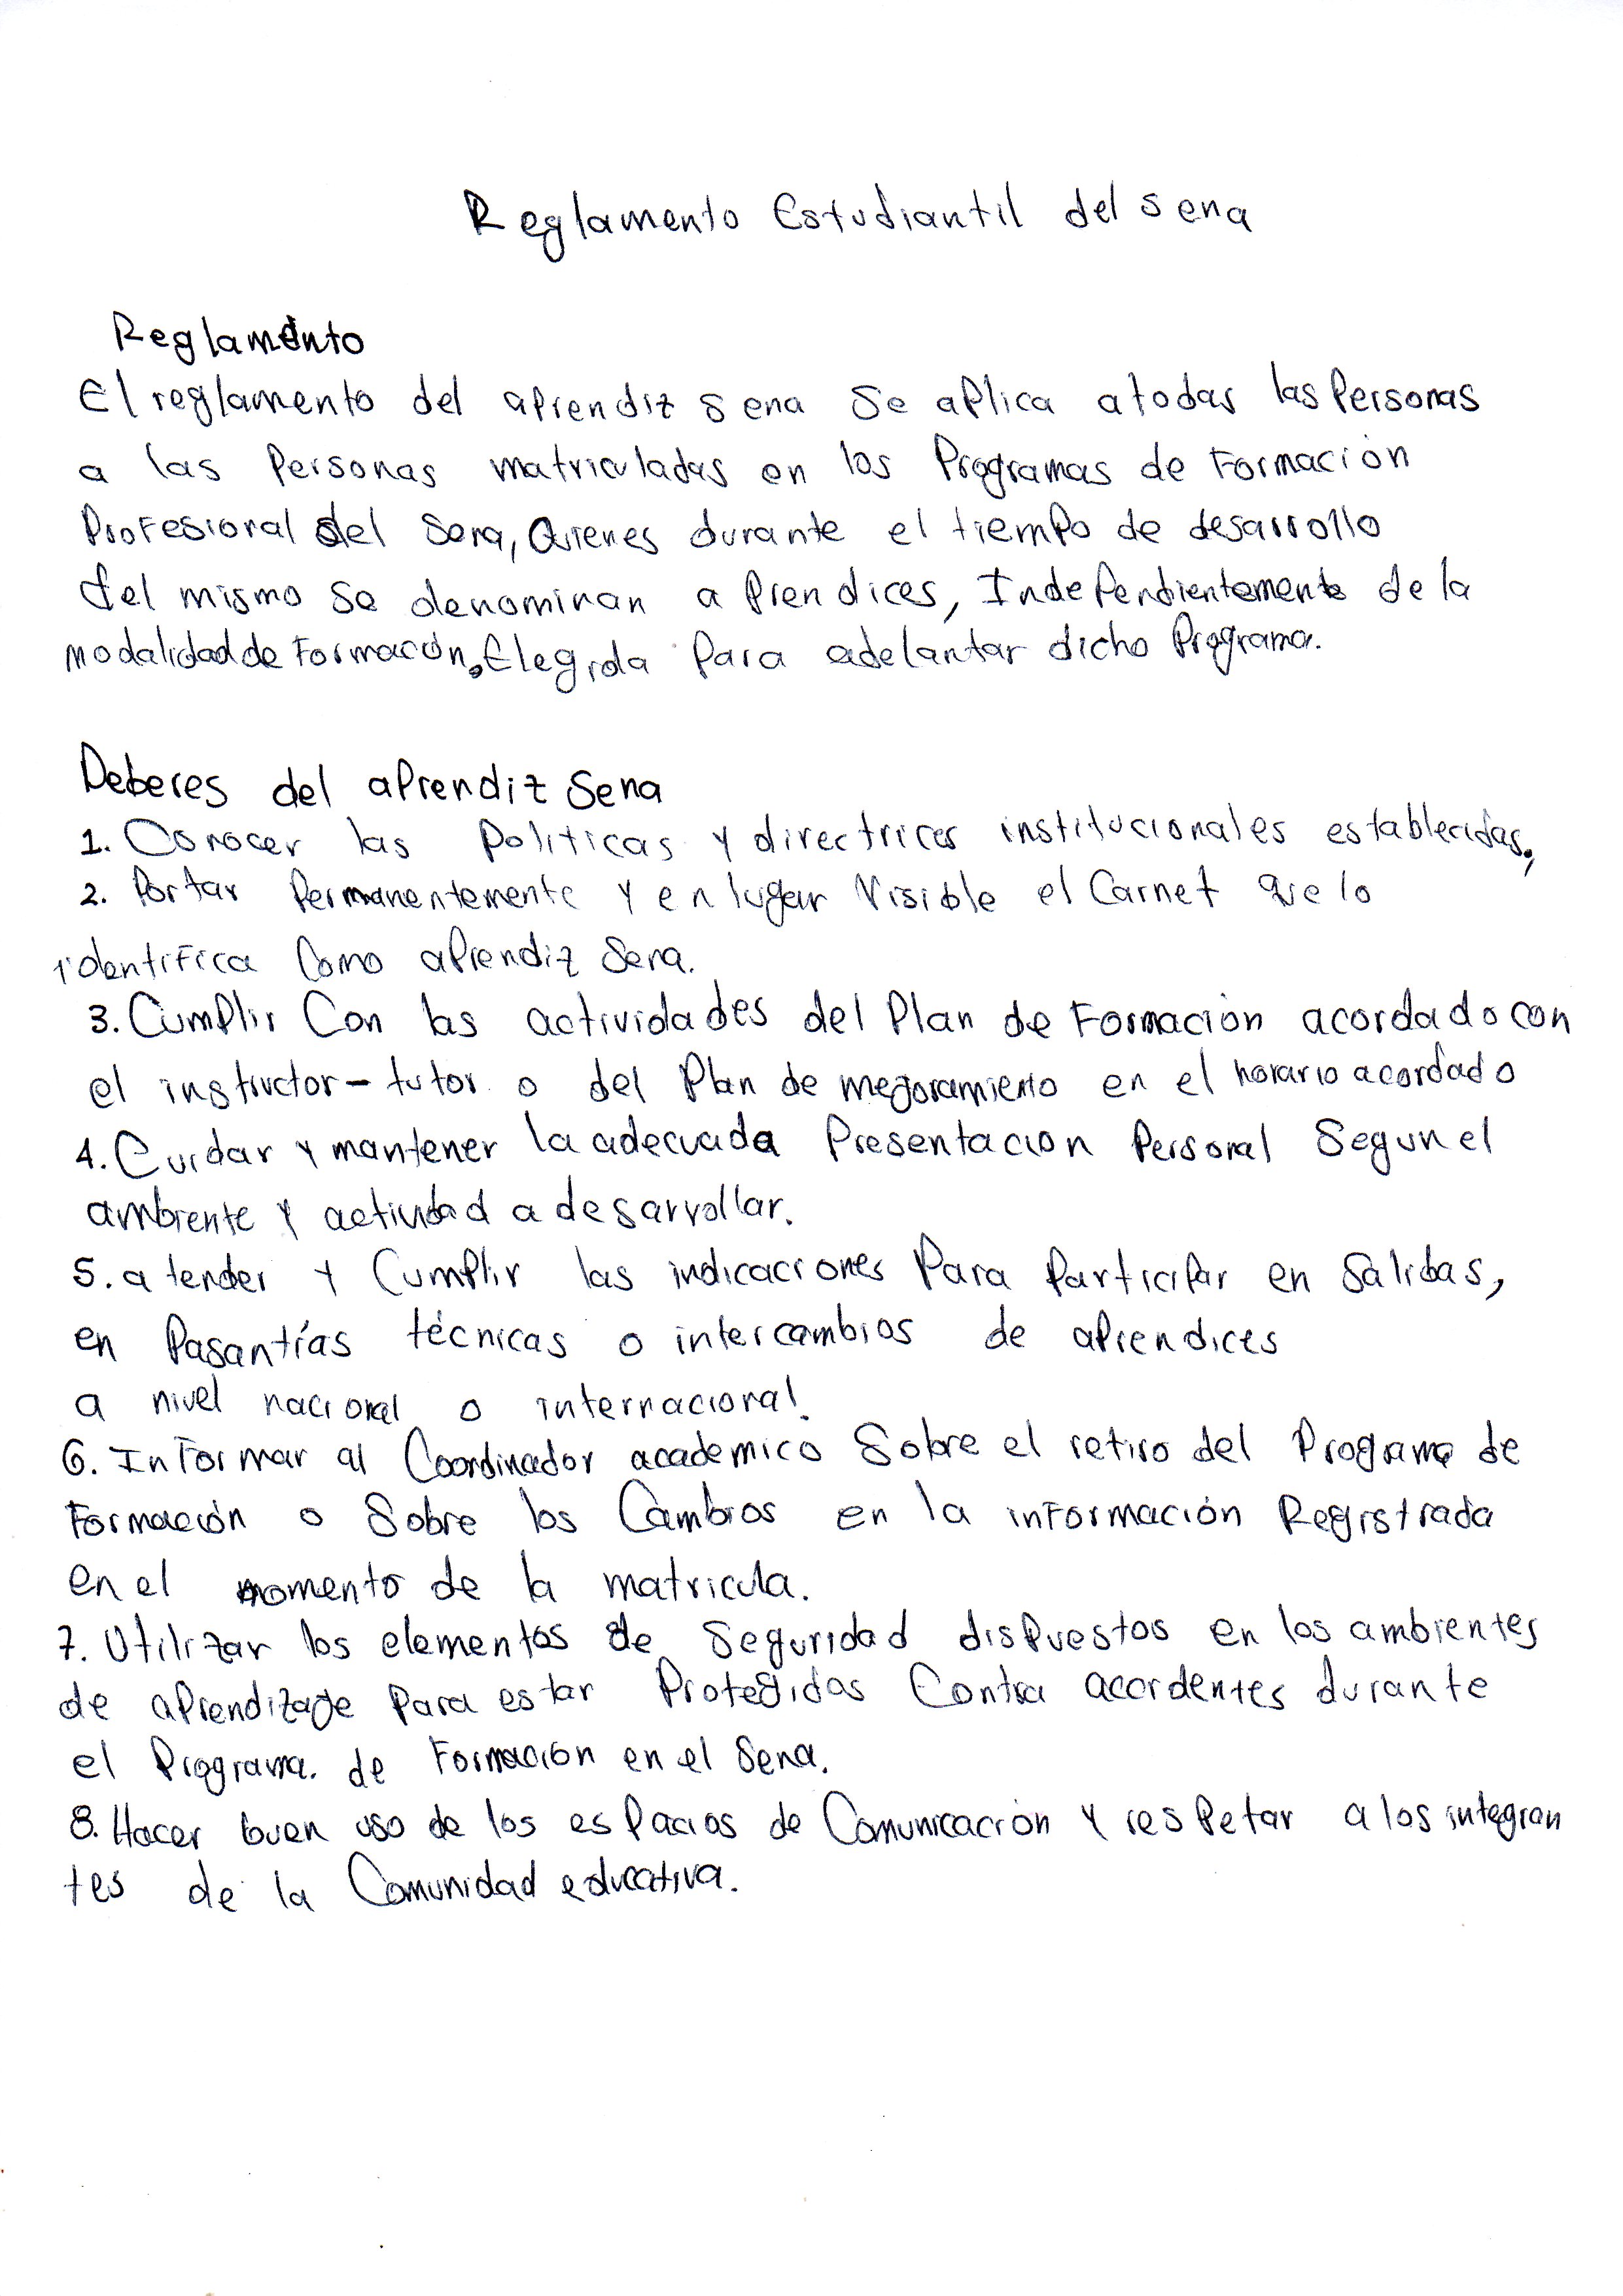 Reglamento Estudiantil del sena
Reglamento
El reglamento del aprendiz sena se aplica a todas las Personas
a las Personas matriculadas en los Programas de Formación
Profesional del Sena, Quienes durante el tiempo de desarrollo
del mismo se denominan aprendices, Independientemente de la
modalidad de Formación, Elegida Para adelantar dicho Programa.
Deberes del aprendiz Sena
1. Conocer las Politicas y directrices institucionales establecidas.
2. Portar Permanentemente y en lugar Visible el Carnet que lo
identifica Como aprendiz Sena.
3. Cumplir Con las actividades del Plan de Formación acordado con
el instructor-tutor o del Plan de mejoramiento en el horario acordado
4. Cuidar y mantener la adecuada Presentacion Personal Segun el
ambiente y actividad a desarrollar.
5. atender y Cumplir las indicaciones Para Participar en Salidas,
en Pasantías técnicas o intercambios de aprendices
a nivel nacional o internacional.
6. Informar al Coordinador academico Sobre el retiro del Programa de
Formación o Sobre los Cambios en la información Registrada
en el momento de la matricula.
7. Utilizar los elementos de Seguridad dispuestos en los ambientes
de aprendizaje Para estar Protegidos Contra accidentes durante
el Programa. de Formación en el Sena.
8. Hacer buen uso de los espacios de Comunicación y respetar a los integran
tes de la Comunidad educativa.